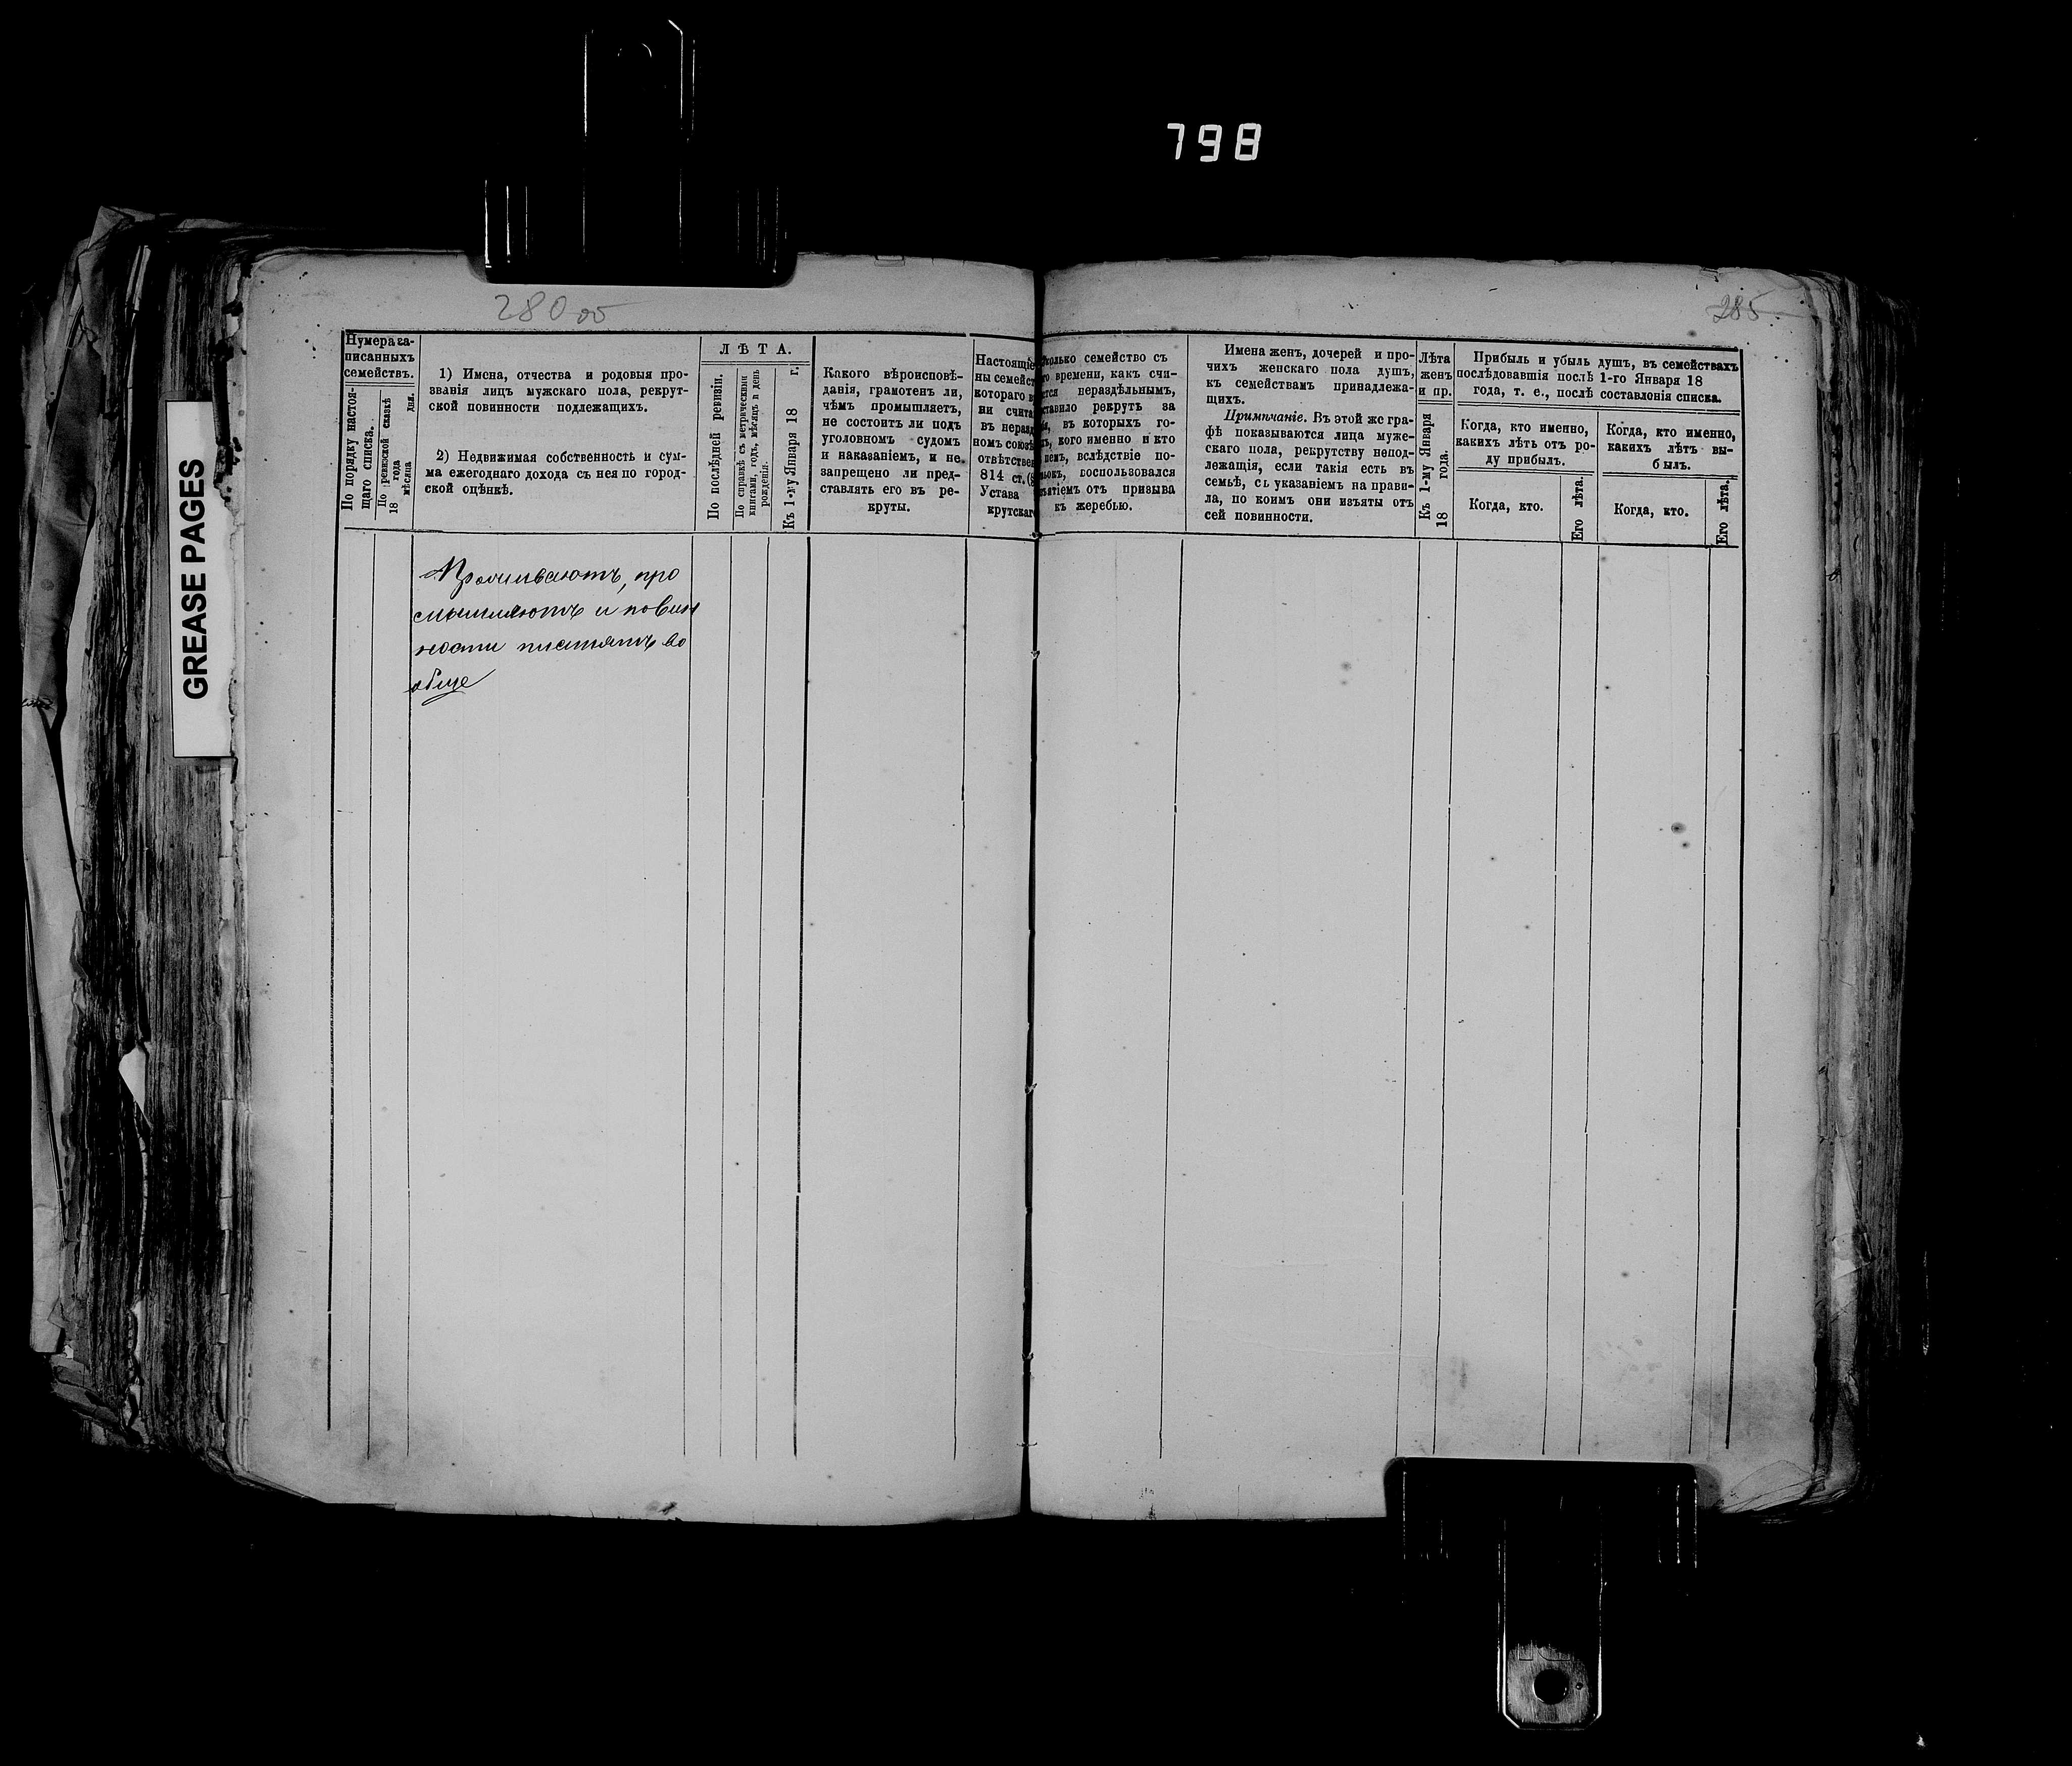 798
280 об
285
GREASE PAGES
Нумера за-
писанныхъ
семействъ.
По порядку настоя-
щаго списка.
По ревизской сказкѣ
18 года
мѣсяца дня.
1) Имена, отчества и родовыя про-
званія лицъ мужскаго пола, рекрут-
ской повинности подлежащихъ.
2) Недвижимая собственность и сум-
ма ежегоднаго дохода съ нея по город-
ской оцѣнкѣ.
ЛѢТА.
По послѣдней ревизіи.
По справкѣ съ метрическими
книгами, годъ, мѣсяцъ и день
рожденія.
Къ 1-му Января 18 г.
Какого вѣроисповѣ-
данія, грамотенъ ли,
чѣмъ промышляетъ,
не состоитъ ли подъ
уголовномъ судомъ
и наказаніемъ, и не
запрещено ли пред-
ставлять его въ ре-
круты.
Настоящіе
ны семейст
котораго в
ни счита
въ нераз
номъ союзѣ
отвѣтствен
814 ст.
Устава
крутскаг
колько семейство съ
го времени, какъ счи-
ется нераздѣльнымъ,
ставило рекрутъ за
въ которыхъ го-
кого именно и кто
нихъ, вслѣдствіе по-
воспользовался
изъятіемъ отъ призыва
къ жеребью.
Имена женъ, дочерей и про-
чихъ женскаго пола душъ,
къ семействамъ принадлежа-
щихъ.
Примѣчаніе. Въ этой же гра-
фѣ показываются лица муже-
скаго пола, рекрутству непод-
лежащія, если такія есть въ
семьѣ, съ указаніемъ на прави-
ла, по коимъ они изъяты отъ
сей повинности.
Лѣта
женъ
и пр.
Къ 1-му Января
18 года.
Прибыль и убыль душъ, въ семействахъ
послѣдовавшія послѣ 1-го Января 18
года, т. е., послѣ составленія списка.
Когда, кто именно,
какихъ лѣтъ отъ ро-
ду прибылъ.
Когда, кто.
Его лѣта.
Когда, кто именно,
какихъ лѣтъ вы-
былъ.
Когда, кто.
Его лѣта.
Проживаютъ, про
смышляютъ и повин
ности платятъ во
обще